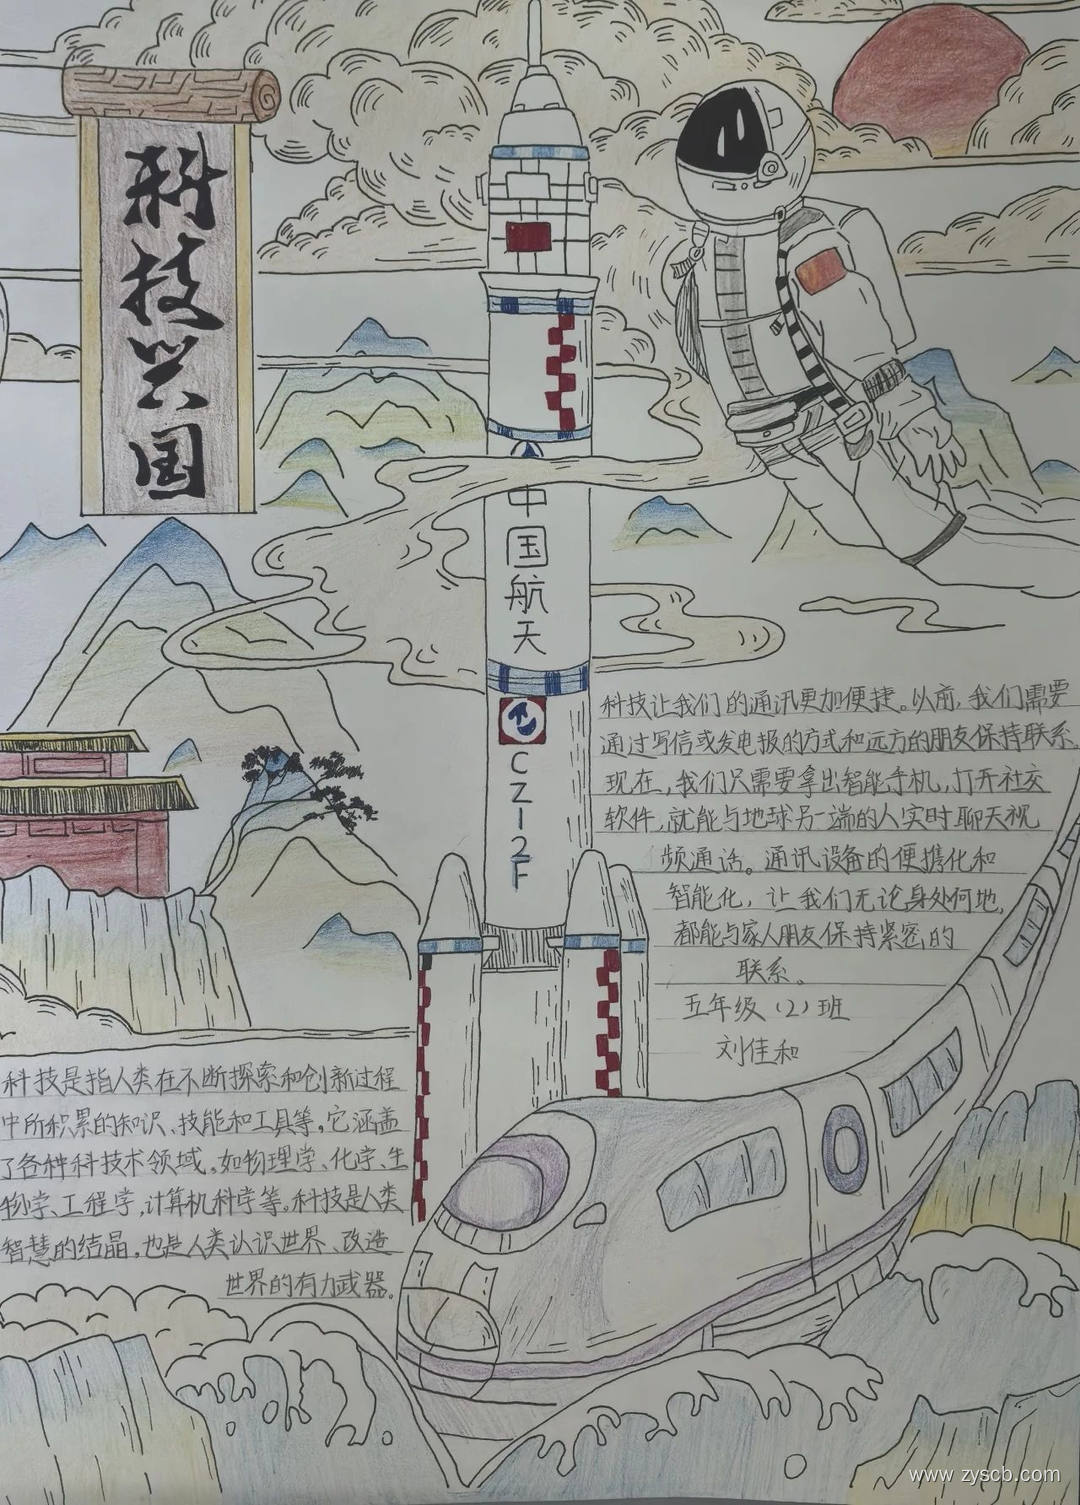 科技兴国
中国航天
CZ-2F
科技让我们的通讯更加便捷。以前,我们需要
通过写信或发电报的方式和远方的朋友保持联系.
现在,我们只需要拿出智能手机,打开社交
软件,就能与地球另一端的人实时聊天视
频通话。通讯设备的便携化和
智能化,让我们无论身处何地,
都能与家人朋友保持紧密的
联系。
五年级(2)班
刘佳和
科技是指人类在不断探索和创新过程
中所积累的知识、技能和工具等,它涵盖
了各种科技术领域。如物理学、化学、生
物学、工程学,计算机科学等。科技是人类
智慧的结晶,也是人类认识世界、改造
世界的有力武器。
www.zyscb.com